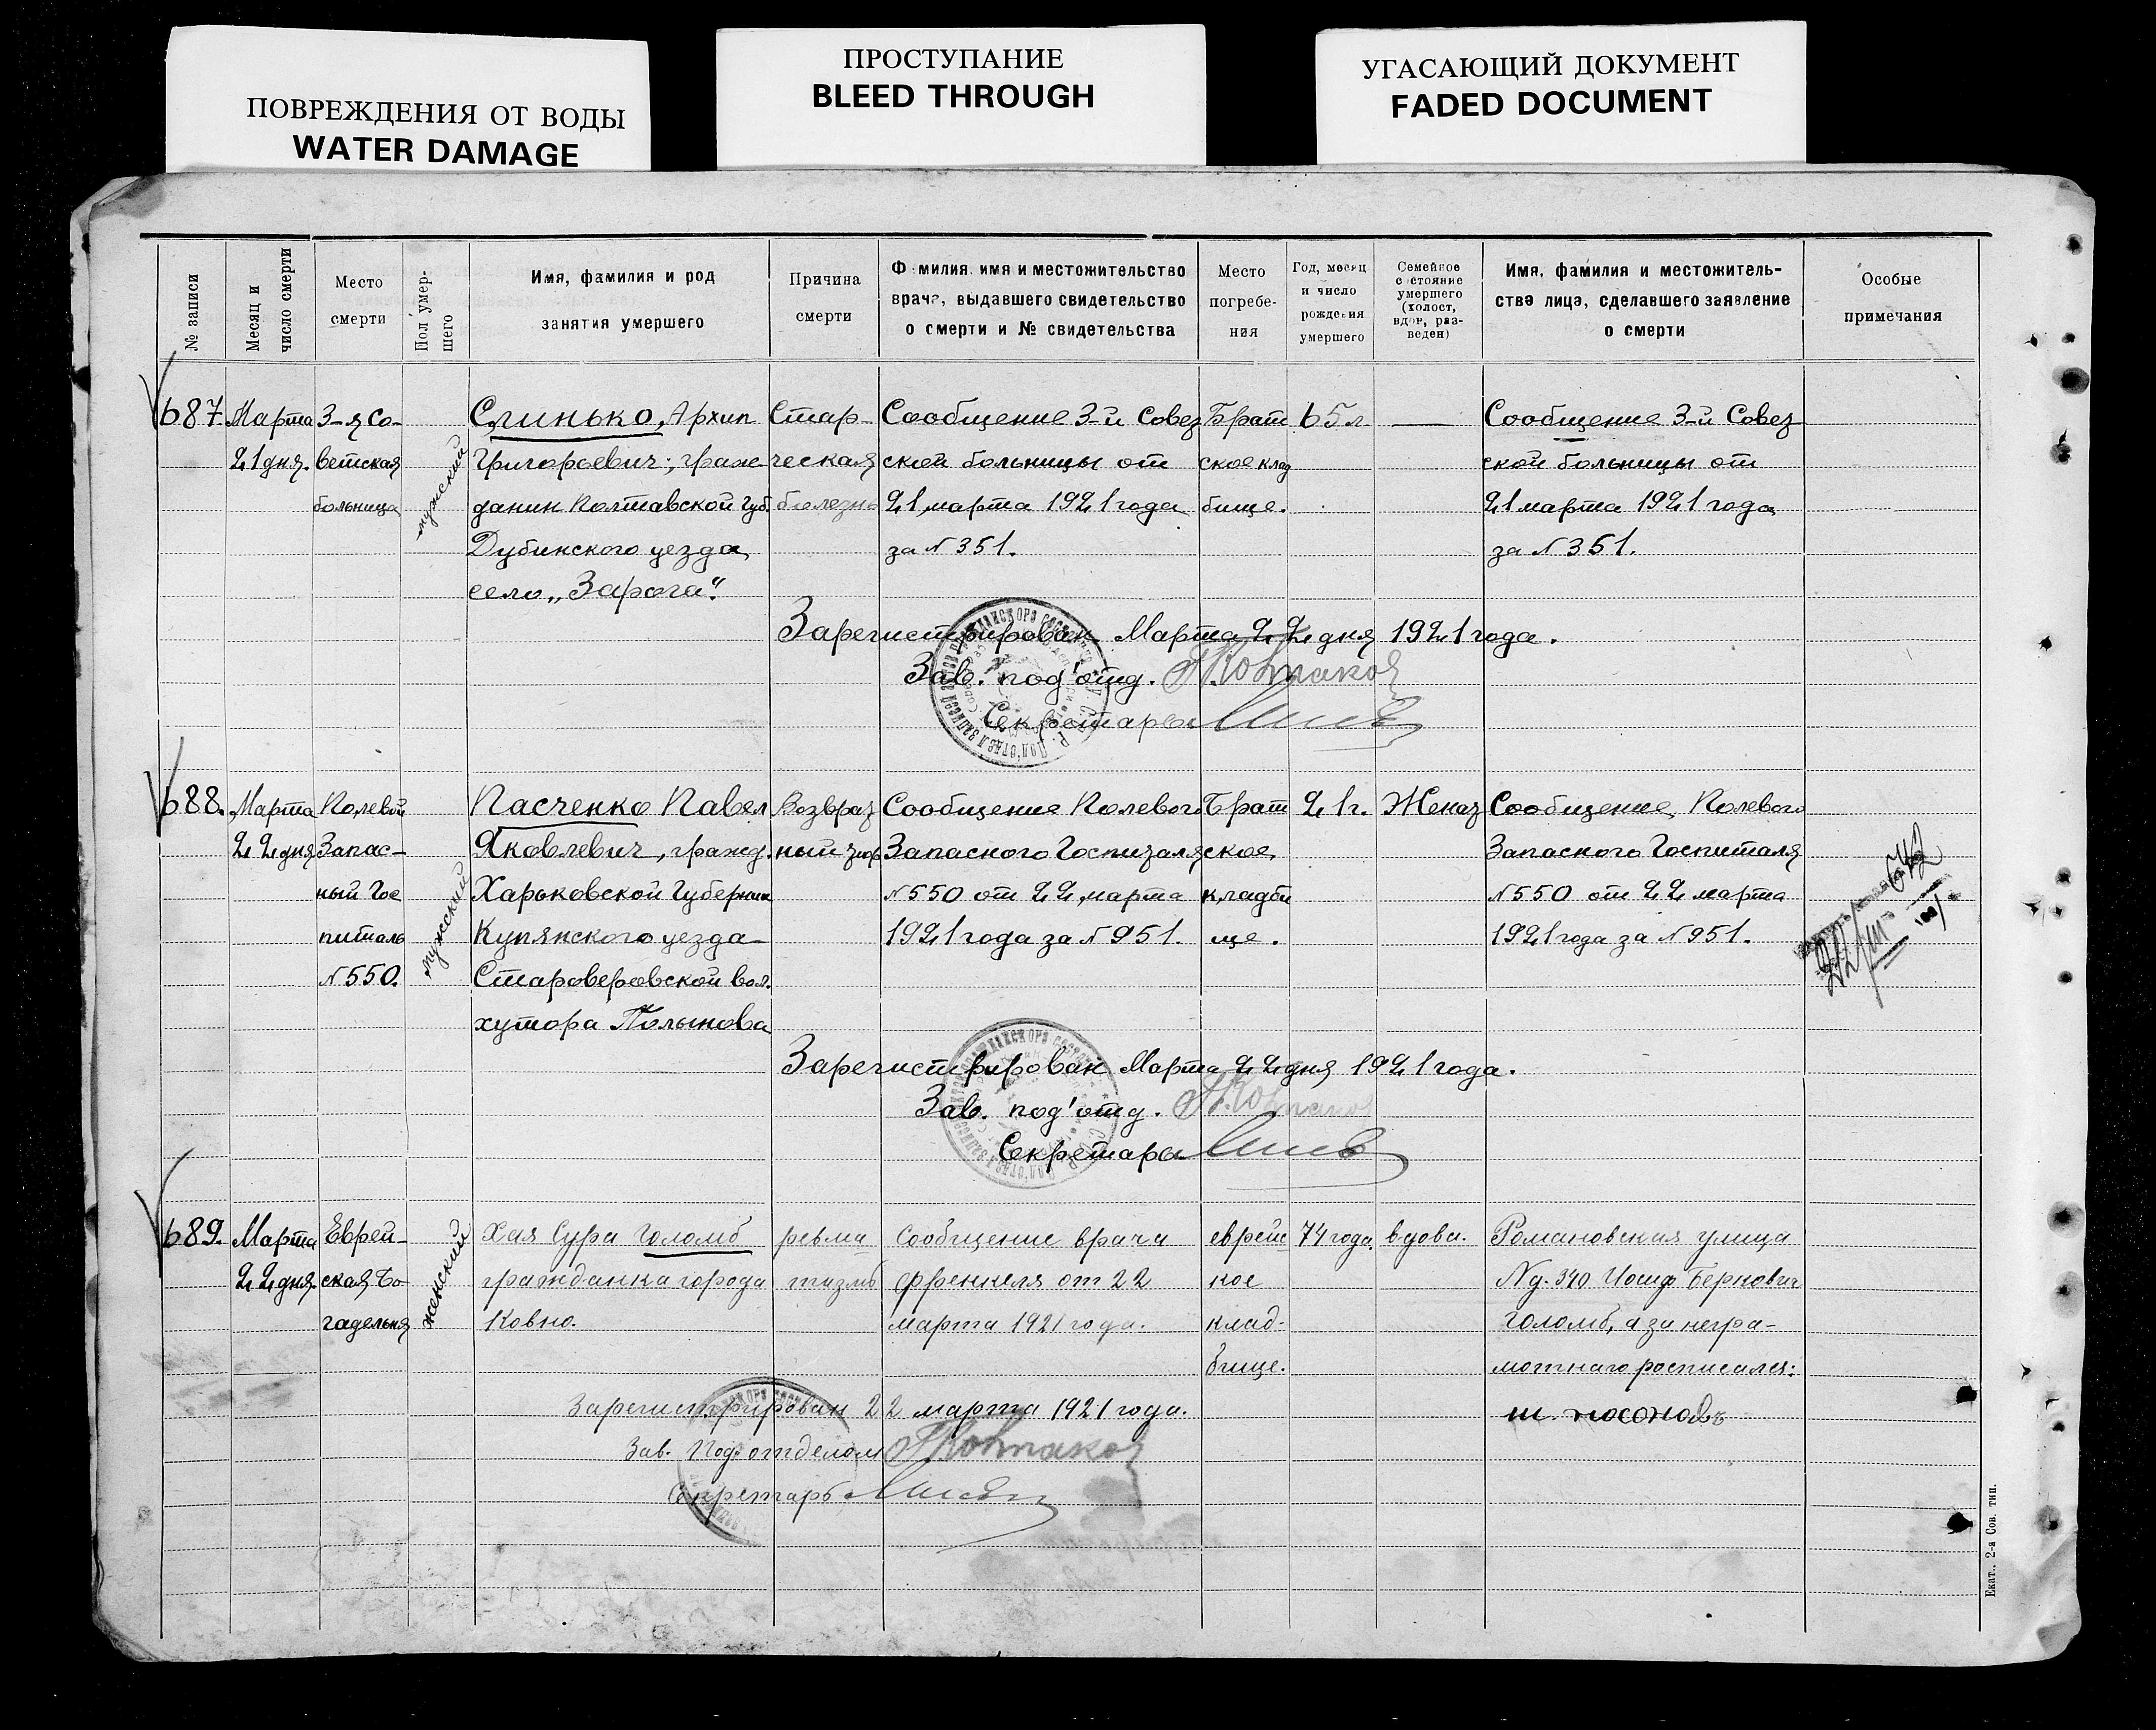 ПОВРЕЖДЕНИЯ ОТ ВОДЫ
WATER DAMAGE
ПРОСТУПАНИЕ
BLEED THROUGH
УГАСАЮЩИЙ ДОКУМЕНТ
FADED DOCUMENT
№ записи
Месяц и
число смерти
Место
смерти
Пол умер-
шего
Имя, фамилия и род
занятия умершего
Причина
смерти
Фамилия, имя и местожительство
врача, выдавшего свидетельство
о смерти и № свидетельства
Место
погребе-
ния
Год, месяц
и число
рождения
умершего
Семейное
состояние
умершего
(холост,
вдов, раз-
веден)
Имя, фамилия и местожитель-
ство лица, сделавшего заявление
о смерти
Особые
примечания
687.
Марта
21 дня.
3-я Со-
ветская
больница
мужской
Слинько, Архип
Григорьевич, граж-
данин Полтавской губ.
Дубинского уезда
село „Зарога".
Стар-
ческая
болезнь
Сообщение 3-й Совет
ской больницы от
21 марта 1921 года
за № 351.
Брат
ское клад
бище.
65 л
—
Сообщение 3-й Совет
ской больницы от
21 марта 1921 года
за № 351.
Зарегистрирован Марта 22 дня 1921 года.
Зав. под'отд.
Секретарь
688.
Марта
22 дня
Полевой
Запас-
ный Гос
питаль
№ 550.
мужской
Пасченко Павел
Яковлевич, гражд.
Харьковской Губернии
Купянского уезда
Староверовской вол.
хутора Полынова
Возврат
ный тиф
Сообщение Полевого
Запасного Госпиталя
№ 550 от 22 марта
1921 года за № 951.
Брат
ское
кладби
ще.
21 г.
Женат
Сообщение Полевого
Запасного Госпиталя
№ 550 от 22 марта
1921 года за № 951.
Зарегистрирован Марта 22 дня 1921 года.
Зав. под'отд.
Секретарь
689.
Марта
22 дня.
Еврей-
ская Бо
гадельня
женский
Хая Сура Голомб
гражданка города
Ковно.
ревма
тизмъ
Сообщение врача
Френкеля от 22
марта 1921 года.
еврейс
кое
клад-
бище.
74 года.
вдова.
Романовская улица
№ д. 340 Иосиф Беркович
Голомб, а за негра-
мотнаго росписался:
Зарегистрирован 22 марта 1921 года.
Зав. Под. отделом
Секретарь
Екат. 2-я Сов. тип.